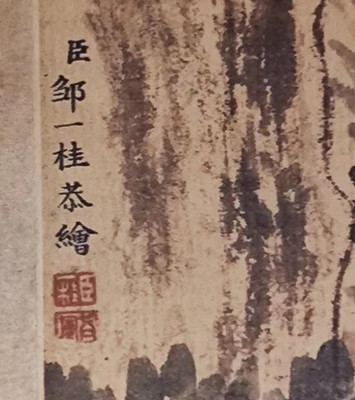 臣邹一桂恭繪